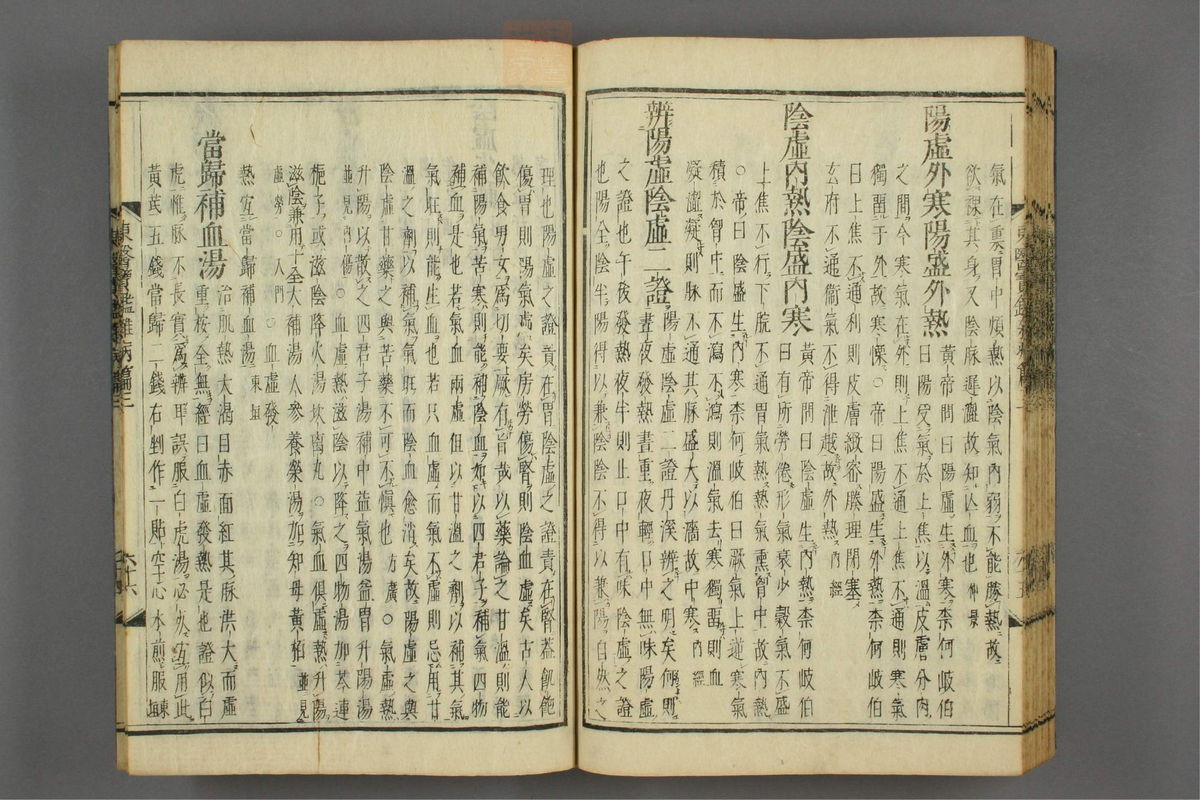 氣在裏胃中煩熱以陰氣內弱不能勝熱故
欲裸其身又陰脉遲澁故知亡血也仲景
陽虛外寒陽盛外熱
黃帝問曰陽虛生外寒柰何岐伯
曰陽受氣於上焦以溫皮膚分肉
之間今寒氣在外則上焦不通上焦不通則寒氣
獨留于外故寒慄○帝曰陽盛生外熱柰何岐伯
曰上焦不通利則皮膚緻密腠理閉塞
玄府不通衞氣不得泄越故外熱內經
陰虛內熱陰盛內寒
黃帝問曰陰虛生內熱柰何岐伯
曰有所勞倦形氣衰少穀氣不盛
上焦不行下脘不通胃氣熱熱氣熏胷中故內熱
○帝曰陰盛生內寒柰何岐伯曰厥氣上逆寒氣
積於胷中而不瀉不瀉則溫氣去寒獨留則血
凝澁凝則脉不通其脉盛大以濇故中寒內經
辨陽虛陰虛二證
陽虛陰虛二證丹溪辨之明矣何則
晝夜發熱晝重夜輕口中無味陽虛
之證也午後發熱夜半則止口中有味陰虛之證
也陽全陰半陽得以兼陰陰不得以兼陽自然之
理也陽虛之證責在胃陰虛之證責在腎蓋飢飽
傷胃則陽氣虛矣房勞傷腎則陰血虛矣古人以
飮食男女爲切要厥有旨哉以藥論之甘溫則能
補陽氣苦寒則能補陰血如以四君子補氣四物
補血是也若氣血兩虛但以甘溫之劑以補其氣
氣旺則能生血也若只血虛而氣不虛則忌用甘
溫之劑以補氣氣旺而陰血愈消矣故陽虛之與
陰虛甘藥之與苦藥不可不愼也方廣○氣虛熱
升陽以散之四君子湯補中益氣湯益胃升陽湯
並見內傷○血虛熱滋陰以降之四物湯加芩連
梔子或滋陰降火湯坎离丸○氣血俱虛熱升陽
滋陰兼用十全大補湯人參養榮湯加知母黃栢並見
虛勞○入門○血虛發
熱宜當歸補血湯東垣
當歸補血湯
治肌熱大渴目赤面紅其脉洪大而虛
重按全無經曰血虛發熱是也證似白
虎惟脉不長實爲辨耳誤服白虎湯必死宜用此
黃芪五錢當歸二錢右剉作一貼空心水煎服東垣
東醫寶鑑雜病篇三
六十六